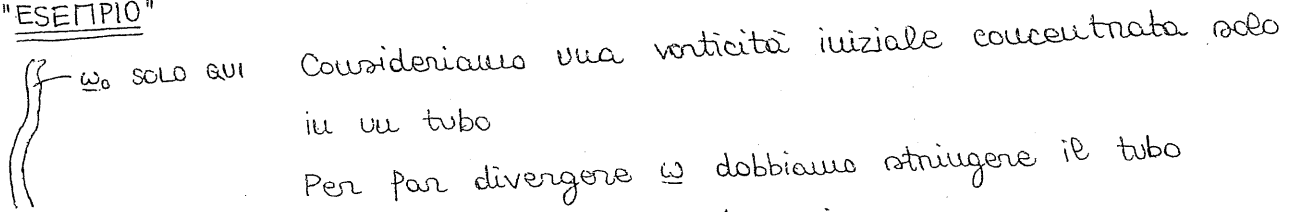 "ESEMPIO"
ω₀ SOLO QUI Consideriamo una vorticità iniziale concentrata solo
in un tubo
Per far divergere ω dobbiamo stringere il tubo